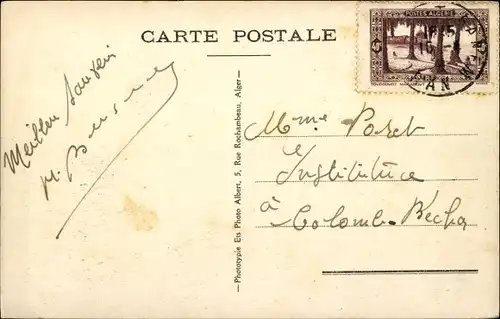 CARTE POSTALE
POSTES ALGERIE
Meilleur souvenir
Phototypie Ets Photo Albert, 5, Rue Rochambeau, Alger
Mme Poret
Institutrice
à
Colomb-Béchar